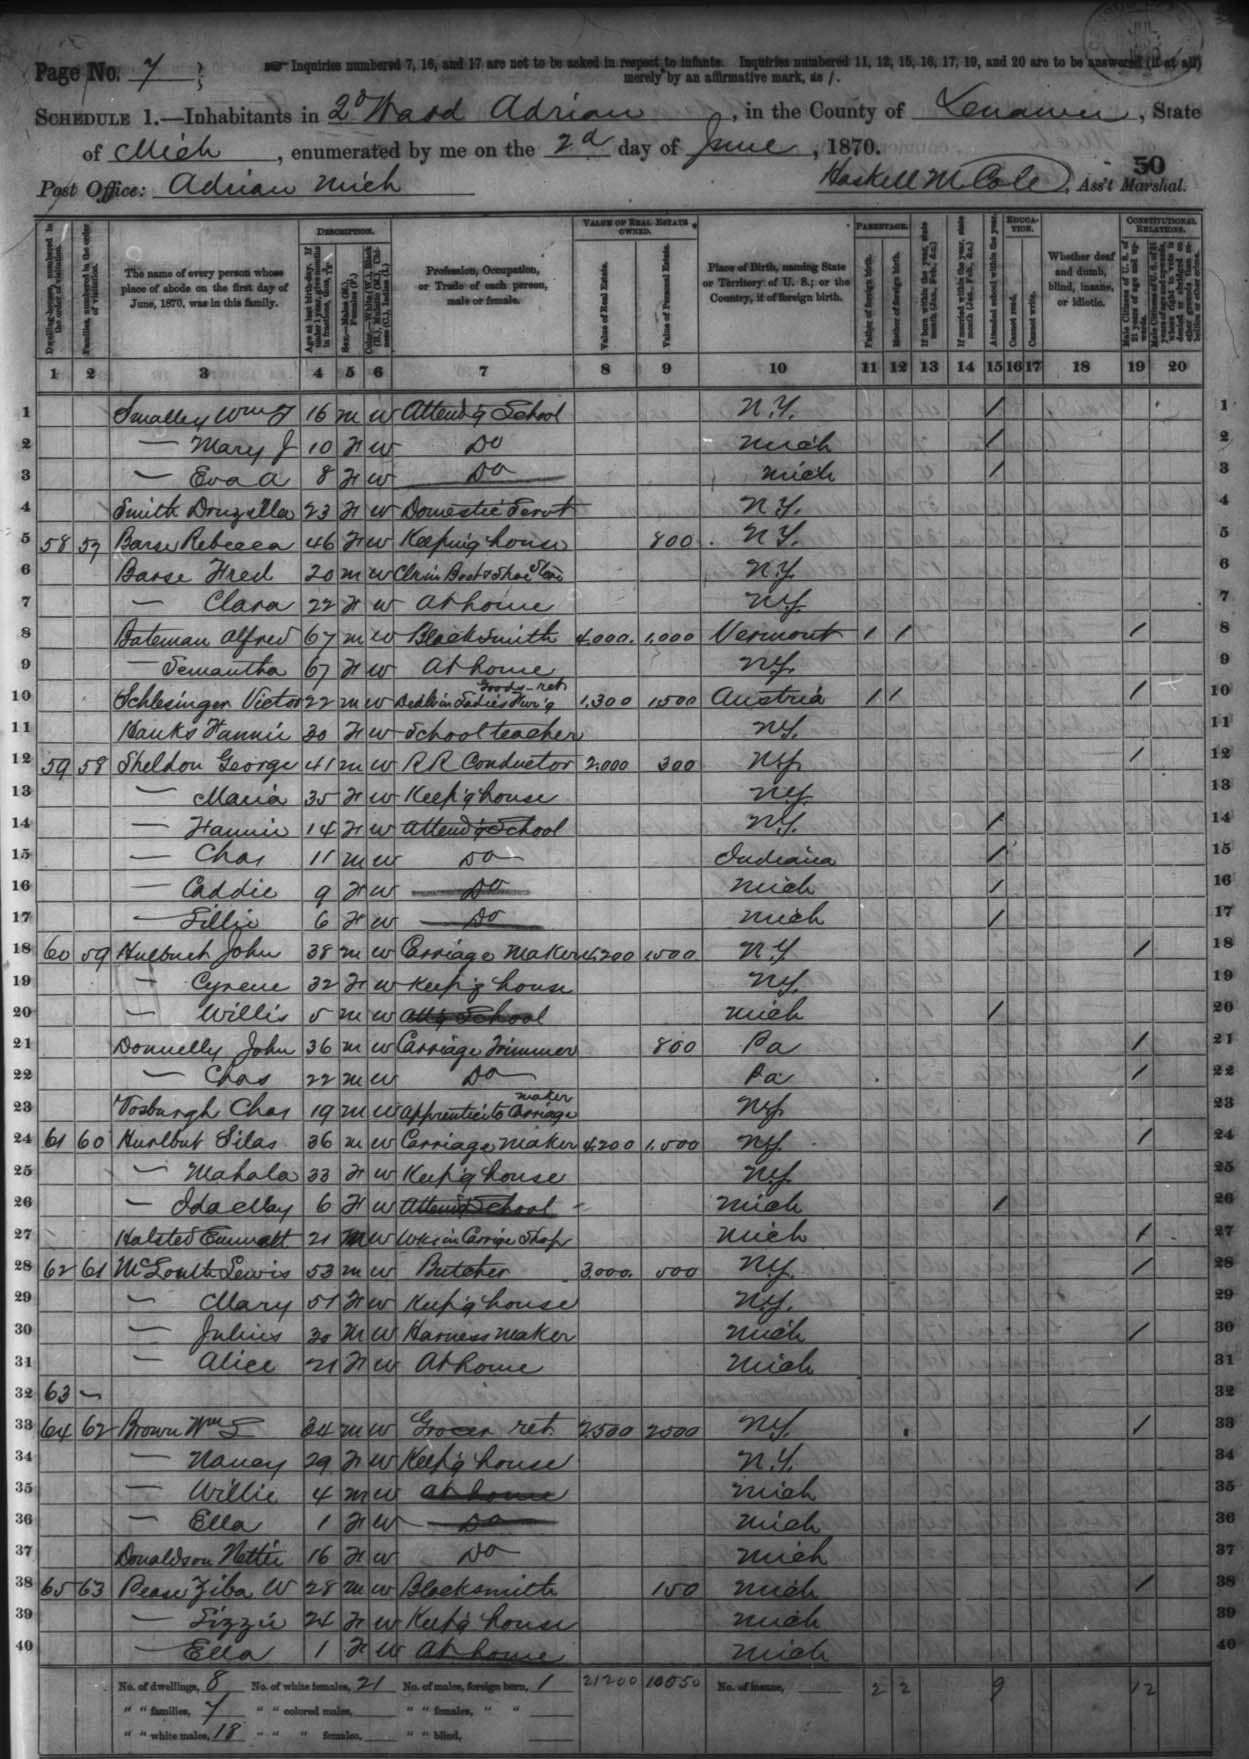 Page No. 7
Inquiries numbered 7, 16, and 17 are not to be asked in respect to infants. Inquiries numbered 11, 12, 15, 16, 17, 19, and 20 are to be answered (if at all)
merely by an affirmative mark, as /.
SCHEDULE 1.—Inhabitants in 2d Ward Adrian, in the County of Lenawee, State
of Mich, enumerated by me on the 2d day of June, 1870.
50
Post Office: Adrian Mich Haskell M Cole, Ass't Marshal.
DESCRIPTION. VALUE OF REAL ESTATE OWNED. PARENTAGE. EDUCATION. CONSTITUTIONAL RELATIONS.
Dwelling-houses, numbered in the order of visitation.
Families, numbered in the order of visitation.
The name of every person whose place of abode on the first day of June, 1870, was in this family.
Age at last birth-day. If under 1 year, give months in fractions, thus, 3/12
Sex.—Males (M.), Females (F.)
Color.—White (W.), Black (B.), Mulatto (M.), Chinese (C.), Indian (I.)
Profession, Occupation, or Trade of each person, male or female.
Value of Real Estate.
Value of Personal Estate.
Place of Birth, naming State or Territory of U. S.; or the Country, if of foreign birth.
Father of foreign birth.
Mother of foreign birth.
If born within the year, state month (Jan., Feb., &c.)
If married within the year, state month (Jan., Feb., &c.)
Attended school within the year.
Cannot read.
Cannot write.
Whether deaf and dumb, blind, insane, or idiotic.
Male Citizens of U. S. of 21 years of age and upwards.
1 2 3 4 5 6 7 8 9 10 11 12 13 14 15 16 17 18 19 20
1 Smalley Wm 16 M W Attend'g School N.Y. / 1
2 — Mary J 10 F W Do Mich / 2
3 — Eva A 8 F W Do Mich / 3
4 Smith Druzella 23 F W Domestic Servt N.Y. 4
5 58 57 Barse Rebecca 46 F W Keeping house 800 N.Y. 5
6 Barse Fred 20 M W Clk in Boot & Shoe Store N.Y. 6
7 — Clara 22 F W At home N.Y. 7
8 Bateman Alfred 67 M W BlackSmith 4,000 1,000 Vermont / / / 8
9 — Semantha 67 F W At home N.Y. 9
10 Schlesinger Victor 22 M W Dealer in Ladies Fur'g Goods-ret 1,300 1500 Austria / / / 10
11 Hanks Fannie 30 F W School teacher N.Y. 11
12 59 58 Sheldon George 41 M W R R Conductor 2,000 300 N.Y. / 12
13 — Maria 35 F W Keep'g house N.Y. 13
14 — Fannie 14 F W Attend'g School N.Y. / 14
15 — Chas 11 M W Do Indiana / 15
16 — Caddie 9 F W Do Mich / 16
17 — Lillie 6 F W Do Mich / 17
18 60 59 Hulburt John 38 M W Carriage Maker 4,200 1,500 N.Y. / 18
19 — Cyrene 32 F W Keep'g house N.Y. 19
20 — Willis 5 M W Att'g School Mich / 20
21 Donnelly John 36 M W Carriage Trimmer 800 Pa / 21
22 — Chas 22 M W Do Pa / 22
23 Vosburgh Chas 19 M W Apprentice to Carriage maker N.Y. 23
24 61 60 Hurlbut Silas 36 M W Carriage Maker 4,200 1,500 N.Y. / 24
25 — Mahala 33 F W Keep'g house N.Y. 25
26 — Ida May 6 F W Attend'g School Mich / 26
27 Halsted Emmett 21 M W Wks in Carrige Shop Mich / 27
28 62 61 McLouth Lewis 53 M W Butcher 3,000 500 N.Y. / 28
29 — Mary 51 F W Keep'g house N.Y. 29
30 — Julius 30 M W Harness Maker Mich / 30
31 — Alice 21 F W At home Mich 31
32 63 — 32
33 64 62 Brown Wm S 34 M W Grocer ret 2,500 2500 N.Y. / 33
34 — Nancy 29 F W Keep'g house N.Y. 34
35 — Willie 4 M W At home Mich 35
36 — Ella 1 F W Do Mich 36
37 Donaldson Nettie 16 F W Do Mich 37
38 65 63 Pease Ziba W 28 M W Blacksmith 150 Mich / 38
39 — Lizzie 24 F W Keep'g house Mich 39
40 — Ella 1 F W At home Mich 40
No. of dwellings, 8 No. of white females, 21 No. of males, foreign born, 1 21200 10050 No. of insane, 2 2 9 12
" " families, 7 " " colored males, " " females, " "
" " white males, 18 " " " females, " " blind,